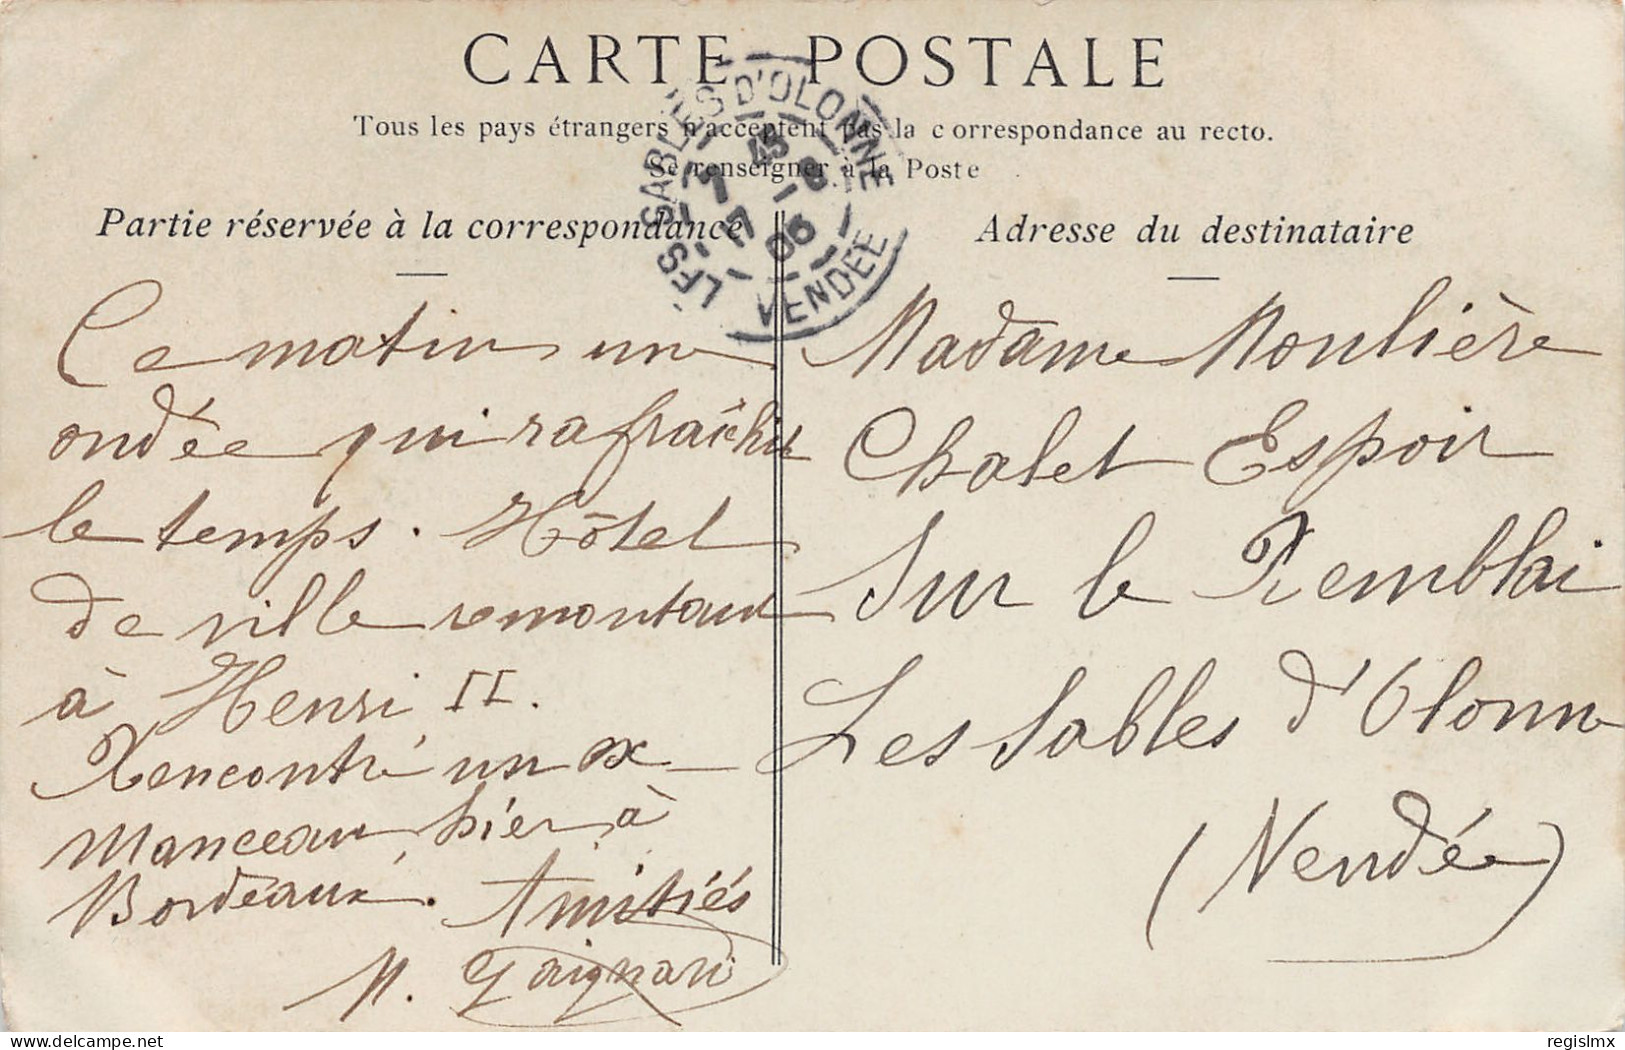 CARTE POSTALE
Tous les pays étrangers n'acceptent pas la correspondance au recto.
Se renseigner à la Poste
LES SABLES D'OLONNE
7 45
17 -8
05
VENDÉE
Partie réservée à la correspondance
Ce matin un
ondée qui rafraîchit
le temps. Hôtel
de ville remontant
à Henri II.
Rencontré un ex
Manceau hier à
Bordeaux. Amitiés
M. Gaignard
Adresse du destinataire
Madame Moulière
Chalet Espoir
Sur le Remblai
Les Sables d'Olonne
(Vendée)
regislmx
delcampe.net